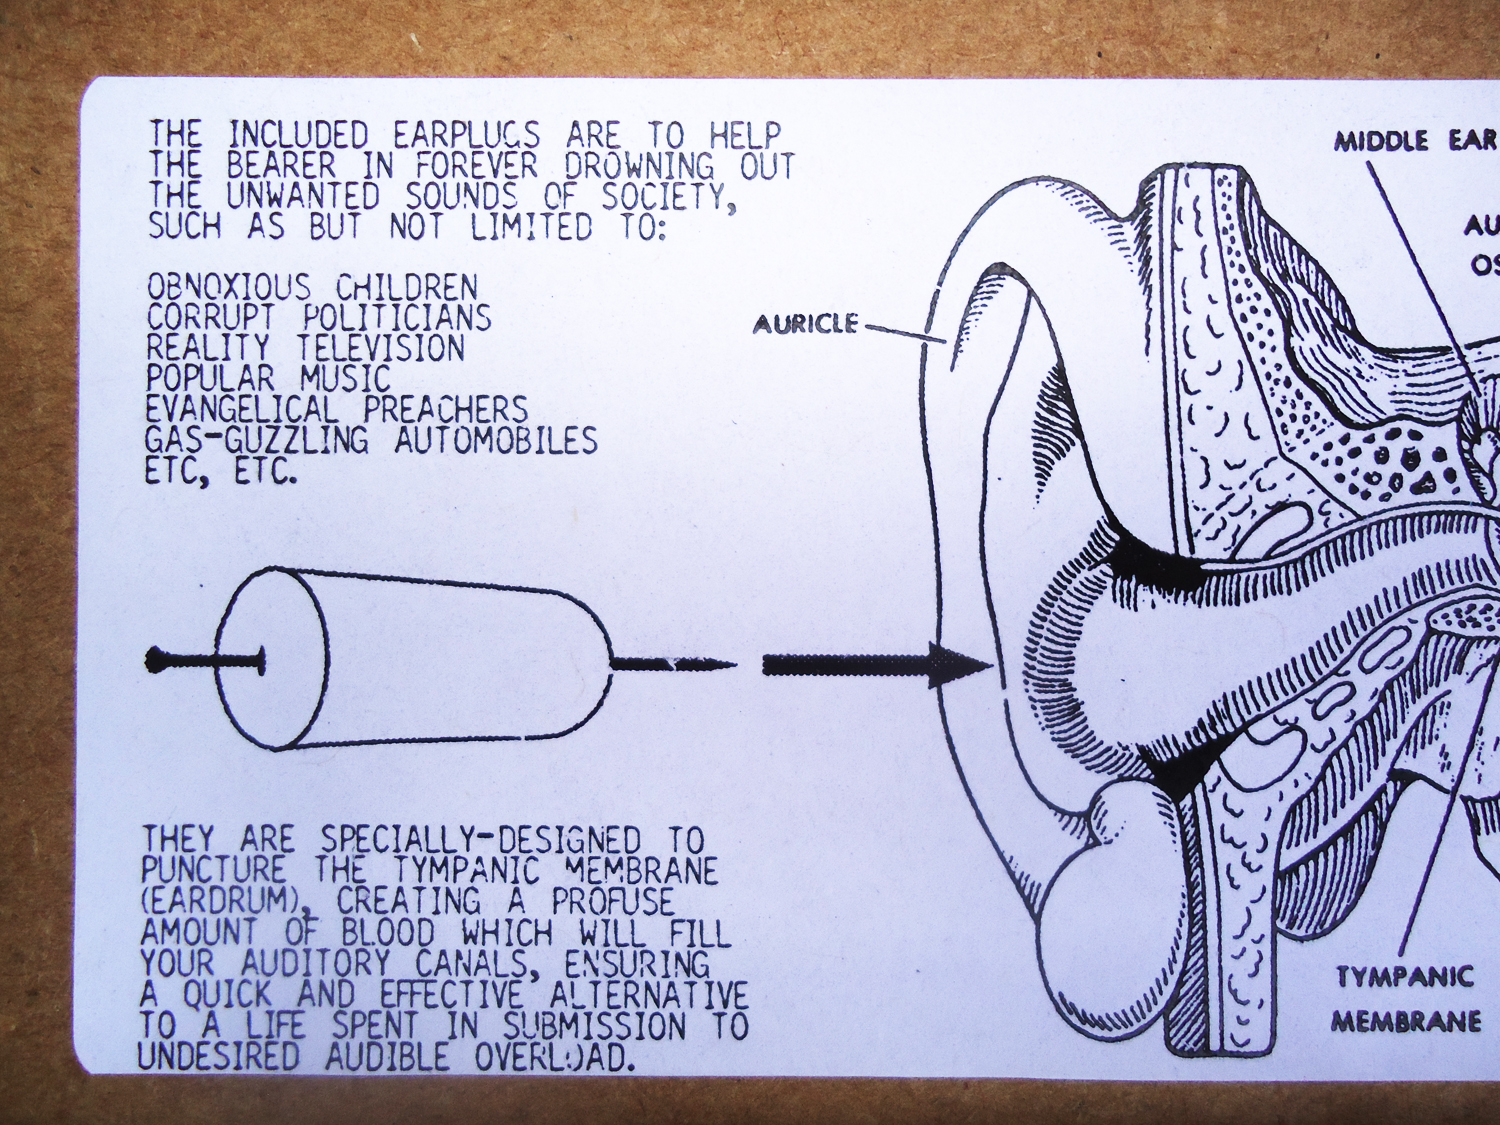 THE INCLUDED EARPLUGS ARE TO HELP
THE BEARER IN FOREVER DROWNING OUT
THE UNWANTED SOUNDS OF SOCIETY,
SUCH AS BUT NOT LIMITED TO:
OBNOXIOUS CHILDREN
CORRUPT POLITICIANS
REALITY TELEVISION
POPULAR MUSIC
EVANGELICAL PREACHERS
GAS-GUZZLING AUTOMOBILES
ETC, ETC.
THEY ARE SPECIALLY-DESIGNED TO
PUNCTURE THE TYMPANIC MEMBRANE
(EARDRUM), CREATING A PROFUSE
AMOUNT OF BLOOD WHICH WILL FILL
YOUR AUDITORY CANALS, ENSURING
A QUICK AND EFFECTIVE ALTERNATIVE
TO A LIFE SPENT IN SUBMISSION TO
UNDESIRED AUDIBLE OVERLOAD.
MIDDLE EAR
AU
OS
AURICLE
TYMPANIC
MEMBRANE